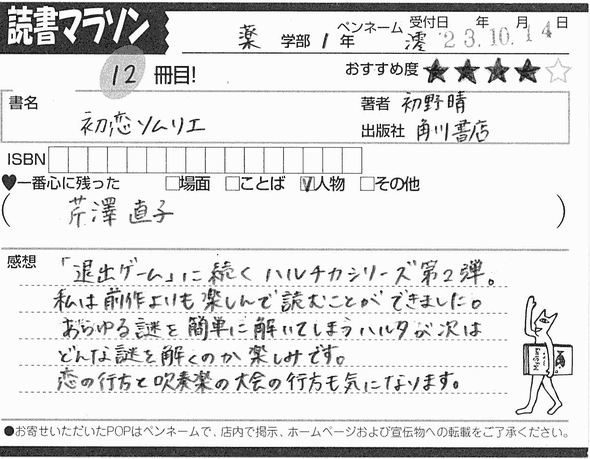 読書マラソン
薬 学部 1 年 ペンネーム 澪 受付日 '23.年10.月14日
12 冊目!
おすすめ度 ★★★★☆
書名 初恋ソムリエ
著者 初野晴
出版社 角川書店
ISBN
♥一番心に残った □場面 □ことば ☑人物 □その他
( 芹澤 直子 )
感想
「退出ゲーム」に続くハルチカシリーズ第2弾。
私は前作よりも楽しんで読むことができました。
あらゆる謎を簡単に解いてしまうハルタが次は
どんな謎を解くのか楽しみです。
恋の行方と吹奏楽の大会の行方も気になります。
●お寄せいただいたPOPはペンネームで、店内で掲示、ホームページおよび宣伝物への転載をご了承ください。